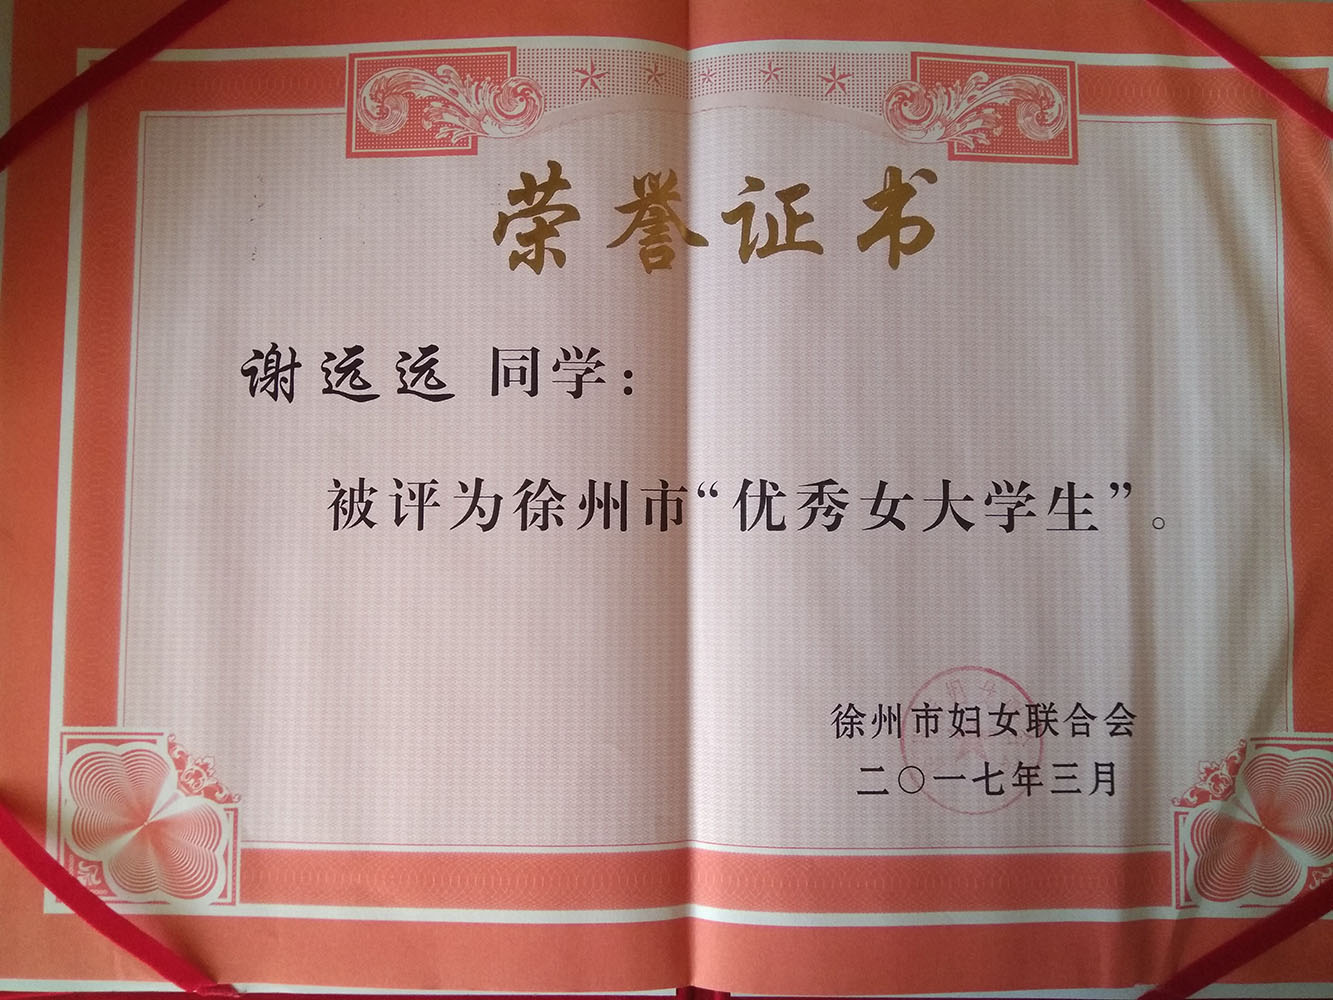 荣誉证书
谢远远 同学：
被评为徐州市“优秀女大学生”。
徐州市妇女联合会
二〇一七年三月